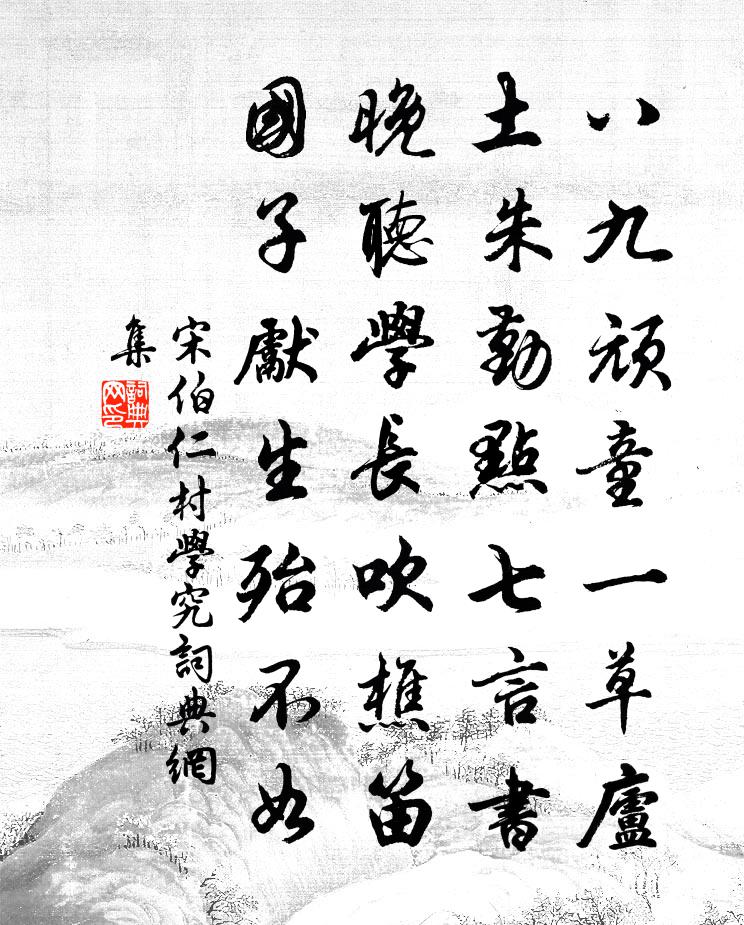 八九頑童一草廬
土朱勤點七言書
晚聽學長吹樵笛
國子獻生殆不如
宋伯仁村學究詞典網
集
詞典
网印